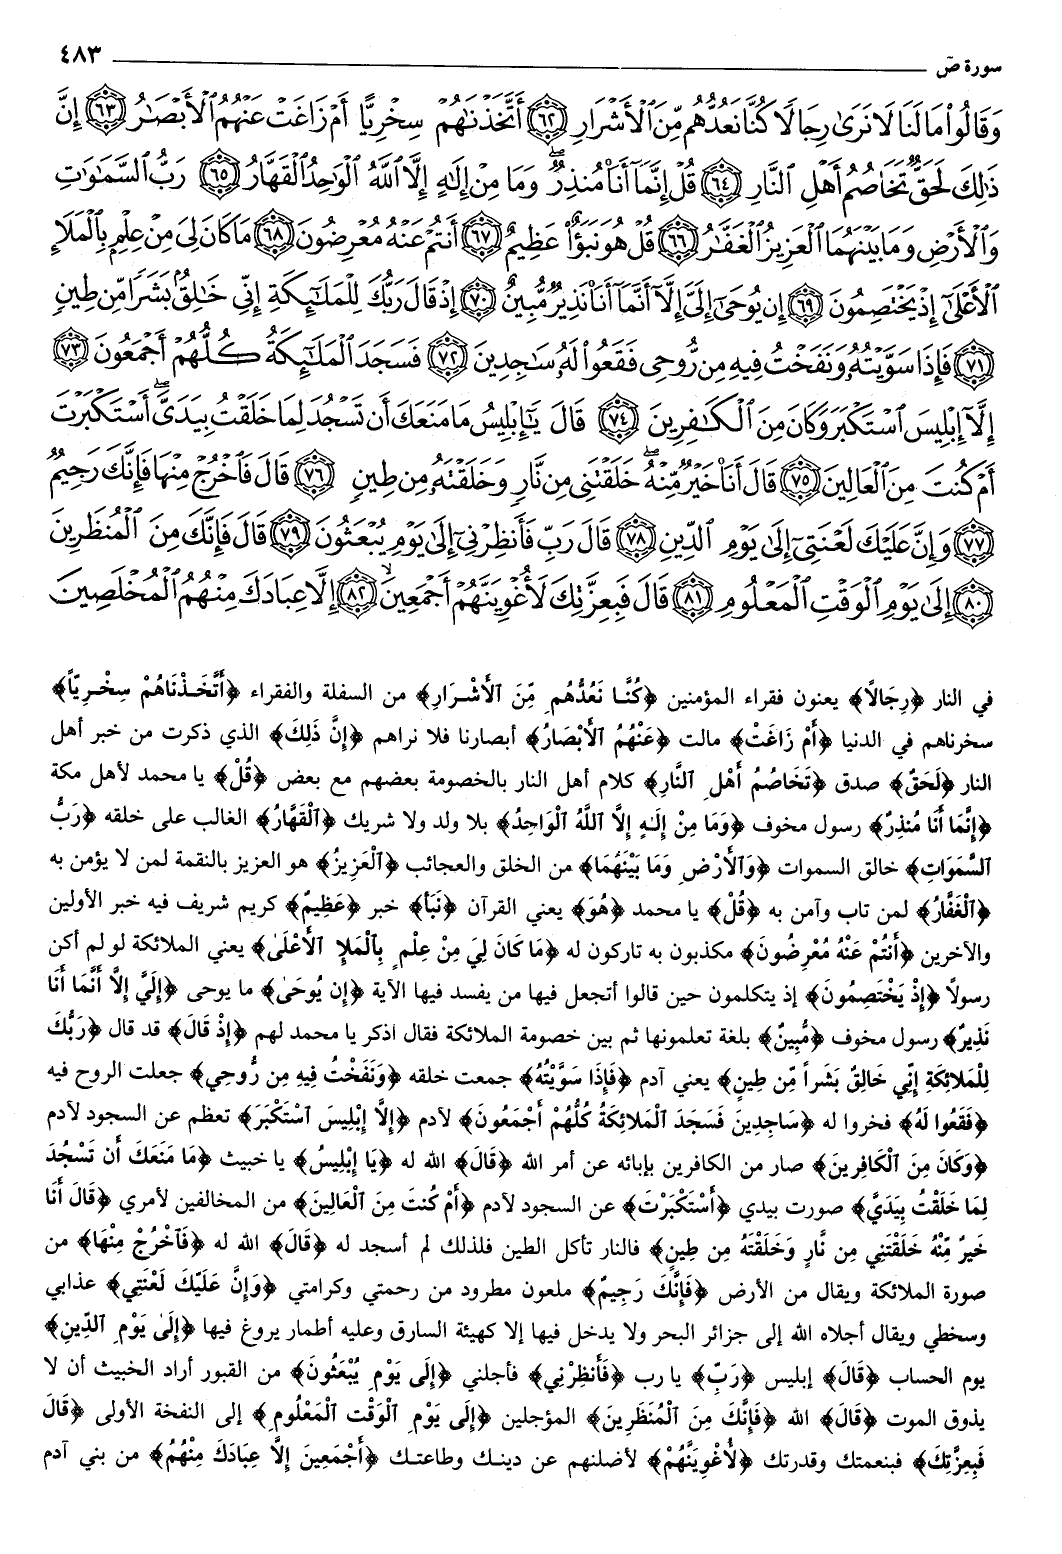 سورة صۤ ٤٨٣
وَقَالُوا۟ مَا لَنَا لَا نَرَىٰ رِجَالًا كُنَّا نَعُدُّهُم مِّنَ ٱلْأَشْرَارِ ﴿٦٢﴾ أَتَّخَذْنَٰهُمْ سِخْرِيًّا أَمْ زَاغَتْ عَنْهُمُ ٱلْأَبْصَٰرُ ﴿٦٣﴾ إِنَّ
ذَٰلِكَ لَحَقٌّ تَخَاصُمُ أَهْلِ ٱلنَّارِ ﴿٦٤﴾ قُلْ إِنَّمَآ أَنَا۠ مُنذِرٌ ۖ وَمَا مِنْ إِلَٰهٍ إِلَّا ٱللَّهُ ٱلْوَٰحِدُ ٱلْقَهَّارُ ﴿٦٥﴾ رَبُّ ٱلسَّمَٰوَٰتِ
وَٱلْأَرْضِ وَمَا بَيْنَهُمَا ٱلْعَزِيزُ ٱلْغَفَّٰرُ ﴿٦٦﴾ قُلْ هُوَ نَبَؤٌا۟ عَظِيمٌ ﴿٦٧﴾ أَنتُمْ عَنْهُ مُعْرِضُونَ ﴿٦٨﴾ مَا كَانَ لِىَ مِنْ عِلْمٍۭ بِٱلْمَلَإِ
ٱلْأَعْلَىٰٓ إِذْ يَخْتَصِمُونَ ﴿٦٩﴾ إِن يُوحَىٰٓ إِلَىَّ إِلَّآ أَنَّمَآ أَنَا۠ نَذِيرٌ مُّبِينٌ ﴿٧٠﴾ إِذْ قَالَ رَبُّكَ لِلْمَلَٰٓئِكَةِ إِنِّى خَٰلِقٌۢ بَشَرًا مِّن طِينٍ
﴿٧١﴾ فَإِذَا سَوَّيْتُهُۥ وَنَفَخْتُ فِيهِ مِن رُّوحِى فَقَعُوا۟ لَهُۥ سَٰجِدِينَ ﴿٧٢﴾ فَسَجَدَ ٱلْمَلَٰٓئِكَةُ كُلُّهُمْ أَجْمَعُونَ ﴿٧٣﴾
إِلَّآ إِبْلِيسَ ٱسْتَكْبَرَ وَكَانَ مِنَ ٱلْكَٰفِرِينَ ﴿٧٤﴾ قَالَ يَٰٓإِبْلِيسُ مَا مَنَعَكَ أَن تَسْجُدَ لِمَا خَلَقْتُ بِيَدَىَّ ۖ أَسْتَكْبَرْتَ
أَمْ كُنتَ مِنَ ٱلْعَالِينَ ﴿٧٥﴾ قَالَ أَنَا۠ خَيْرٌ مِّنْهُ ۖ خَلَقْتَنِى مِن نَّارٍ وَخَلَقْتَهُۥ مِن طِينٍ ﴿٧٦﴾ قَالَ فَٱخْرُجْ مِنْهَا فَإِنَّكَ رَجِيمٌ
﴿٧٧﴾ وَإِنَّ عَلَيْكَ لَعْنَتِىٓ إِلَىٰ يَوْمِ ٱلدِّينِ ﴿٧٨﴾ قَالَ رَبِّ فَأَنظِرْنِىٓ إِلَىٰ يَوْمِ يُبْعَثُونَ ﴿٧٩﴾ قَالَ فَإِنَّكَ مِنَ ٱلْمُنظَرِينَ
﴿٨٠﴾ إِلَىٰ يَوْمِ ٱلْوَقْتِ ٱلْمَعْلُومِ ﴿٨١﴾ قَالَ فَبِعِزَّتِكَ لَأُغْوِيَنَّهُمْ أَجْمَعِينَ ۙ ﴿٨٢﴾ إِلَّا عِبَادَكَ مِنْهُمُ ٱلْمُخْلَصِينَ
في النار ﴿رِجَالاً﴾ يعنون فقراء المؤمنين ﴿كُنَّا نَعُدُّهُم مِّنَ ٱلْأَشْرَارِ﴾ من السفلة والفقراء ﴿أَتَّخَذْنَاهُمْ سِخْرِيّاً﴾
سخرناهم في الدنيا ﴿أَمْ زَاغَتْ﴾ مالت ﴿عَنْهُمُ ٱلْأَبْصَارُ﴾ أبصارنا فلا نراهم ﴿إِنَّ ذَلِكَ﴾ الذي ذكرت من خبر أهل
النار ﴿لَحَقٌّ﴾ صدق ﴿تَخَاصُمُ أَهْلِ ٱلنَّارِ﴾ كلام أهل النار بالخصومة بعضهم مع بعض ﴿قُلْ﴾ يا محمد لأهل مكة
﴿إِنَّمَا أَنَا مُنذِرٌ﴾ رسول مخوف ﴿وَمَا مِنْ إِلَـٰهٍ إِلَّا ٱللَّهُ ٱلْوَاحِدُ﴾ بلا ولد ولا شريك ﴿ٱلْقَهَّارُ﴾ الغالب على خلقه ﴿رَبُّ
ٱلسَّمَوَاتِ﴾ خالق السموات ﴿وَٱلْأَرْضِ وَمَا بَيْنَهُمَا﴾ من الخلق والعجائب ﴿ٱلْعَزِيزُ﴾ هو العزيز بالنقمة لمن لا يؤمن به
﴿ٱلْغَفَّارُ﴾ لمن تاب وآمن به ﴿قُلْ﴾ يا محمد ﴿هُوَ﴾ يعني القرآن ﴿نَبَأ﴾ خبر ﴿عَظِيمٌ﴾ كريم شريف فيه خبر الأولين
والآخرين ﴿أَنتُمْ عَنْهُ مُعْرِضُونَ﴾ مكذبون به تاركون له ﴿مَا كَانَ لِيَ مِنْ عِلْمٍ بِٱلْمَلإِ ٱلأَعْلَىٰ﴾ يعني الملائكة لو لم أكن
رسولًا ﴿إِذْ يَخْتَصِمُونَ﴾ إذ يتكلمون حين قالوا أتجعل فيها من يفسد فيها الآية ﴿إِن يُوحَىٰ﴾ ما يوحى ﴿إِلَيَّ إِلاَّ أَنَّمَا أَنَا
نَذِيرٌ﴾ رسول مخوف ﴿مُّبِينٌ﴾ بلغة تعلمونها ثم بين خصومة الملائكة فقال اذكر يا محمد لهم ﴿إِذْ قَالَ﴾ قد قال ﴿رَبُّكَ
لِلْمَلائِكَةِ إِنِّي خَالِقٌ بَشَراً مِّن طِينٍ﴾ يعني آدم ﴿فَإِذَا سَوَّيْتُهُ﴾ جمعت خلقه ﴿وَنَفَخْتُ فِيهِ مِن رُّوحِي﴾ جعلت الروح فيه
﴿فَقَعُوا لَهُ﴾ فخروا له ﴿سَاجِدِينَ فَسَجَدَ ٱلْمَلائِكَةُ كُلُّهُمْ أَجْمَعُونَ﴾ لآدم ﴿إِلاَّ إِبْلِيسَ ٱسْتَكْبَرَ﴾ تعظم عن السجود لآدم
﴿وَكَانَ مِنَ ٱلْكَافِرِينَ﴾ صار من الكافرين بإبائه عن أمر الله ﴿قَالَ﴾ الله له ﴿يَا إِبْلِيسُ﴾ يا خبيث ﴿مَا مَنَعَكَ أَن تَسْجُدَ
لِمَا خَلَقْتُ بِيَدَيَّ﴾ صورت بيدي ﴿أَسْتَكْبَرْتَ﴾ عن السجود لآدم ﴿أَمْ كُنتَ مِنَ ٱلْعَالِينَ﴾ من المخالفين لأمري ﴿قَالَ أَنَا
خَيرٌ مِّنْهُ خَلَقْتَنِي مِن نَّارٍ وَخَلَقْتَهُ مِن طِينٍ﴾ فالنار تأكل الطين فلذلك لم أسجد له ﴿قَالَ﴾ الله له ﴿فَٱخْرُجْ مِنْهَا﴾ من
صورة الملائكة ويقال من الأرض ﴿فَإِنَّكَ رَجِيمٌ﴾ ملعون مطرود من رحمتي وكرامتي ﴿وَإِنَّ عَلَيْكَ لَعْنَتِي﴾ عذابي
وسخطي ويقال أجلاه الله إلى جزائر البحر ولا يدخل فيها إلا كهيئة السارق وعليه أطمار يروغ فيها ﴿إِلَىٰ يَوْمِ ٱلدِّينِ﴾
يوم الحساب ﴿قَالَ﴾ إبليس ﴿رَبِّ﴾ يا رب ﴿فَأَنظِرْنِي﴾ فأجلني ﴿إِلَى يَوْمِ يُبْعَثُونَ﴾ من القبور أراد الخبيث أن لا
يذوق الموت ﴿قَالَ﴾ الله ﴿فَإِنَّكَ مِنَ ٱلْمُنظَرِينَ﴾ المؤجلين ﴿إِلَى يَوْمِ ٱلْوَقْتِ ٱلْمَعْلُومِ﴾ إلى النفخة الأولى ﴿قَالَ
فَبِعِزَّتِكَ﴾ فبنعمتك وقدرتك ﴿لأُغْوِيَنَّهُمْ﴾ لأضلنهم عن دينك وطاعتك ﴿أَجْمَعِينَ إِلاَّ عِبَادَكَ مِنْهُمُ﴾ من بني آدم